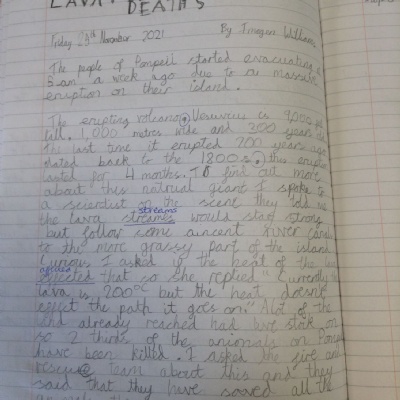 LAVA DEATHS
Friday 29th November 2021 By Imogen Williams
The people of Pompeii started evacuating
6am a week ago due to a massive
eruption on their island.
The erupting volcano, Vesuvius is 9,000
tall. 1,000 metres wide and 200 years
the last time it erupted 200 years ago
dated back to the 1800s, this eruption
lasted for 4 months. To find out more
about this natrual giant I spoke to
a scientist on the scent they told me
streams
the lava streems would start strong
but follow some aincent river
to the more grassy part of the island.
Curious, I asked if the heat of the
that so she replied "Currently the
lava is 200°C but the heat doesn't
effect the path it goes on". Alot of the
already reached had live stok on
so 2 thirds of the animals on
have been killed. I asked the fire and
rescue team about this and they
said that they have saved all the